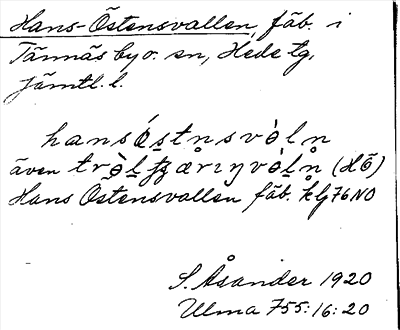 Hans-Östensvallen, fäb. i
Tännäs by o. sn, Hede tg,
Jämtl. l.
hansǿstn̥svòln̥
även trò̤lʈʂærıŋvòln̥ (HÖ)
Hans Östensvallen fäb. klj 76 NO
S. Åsander 1920
Ulma 755:16:20